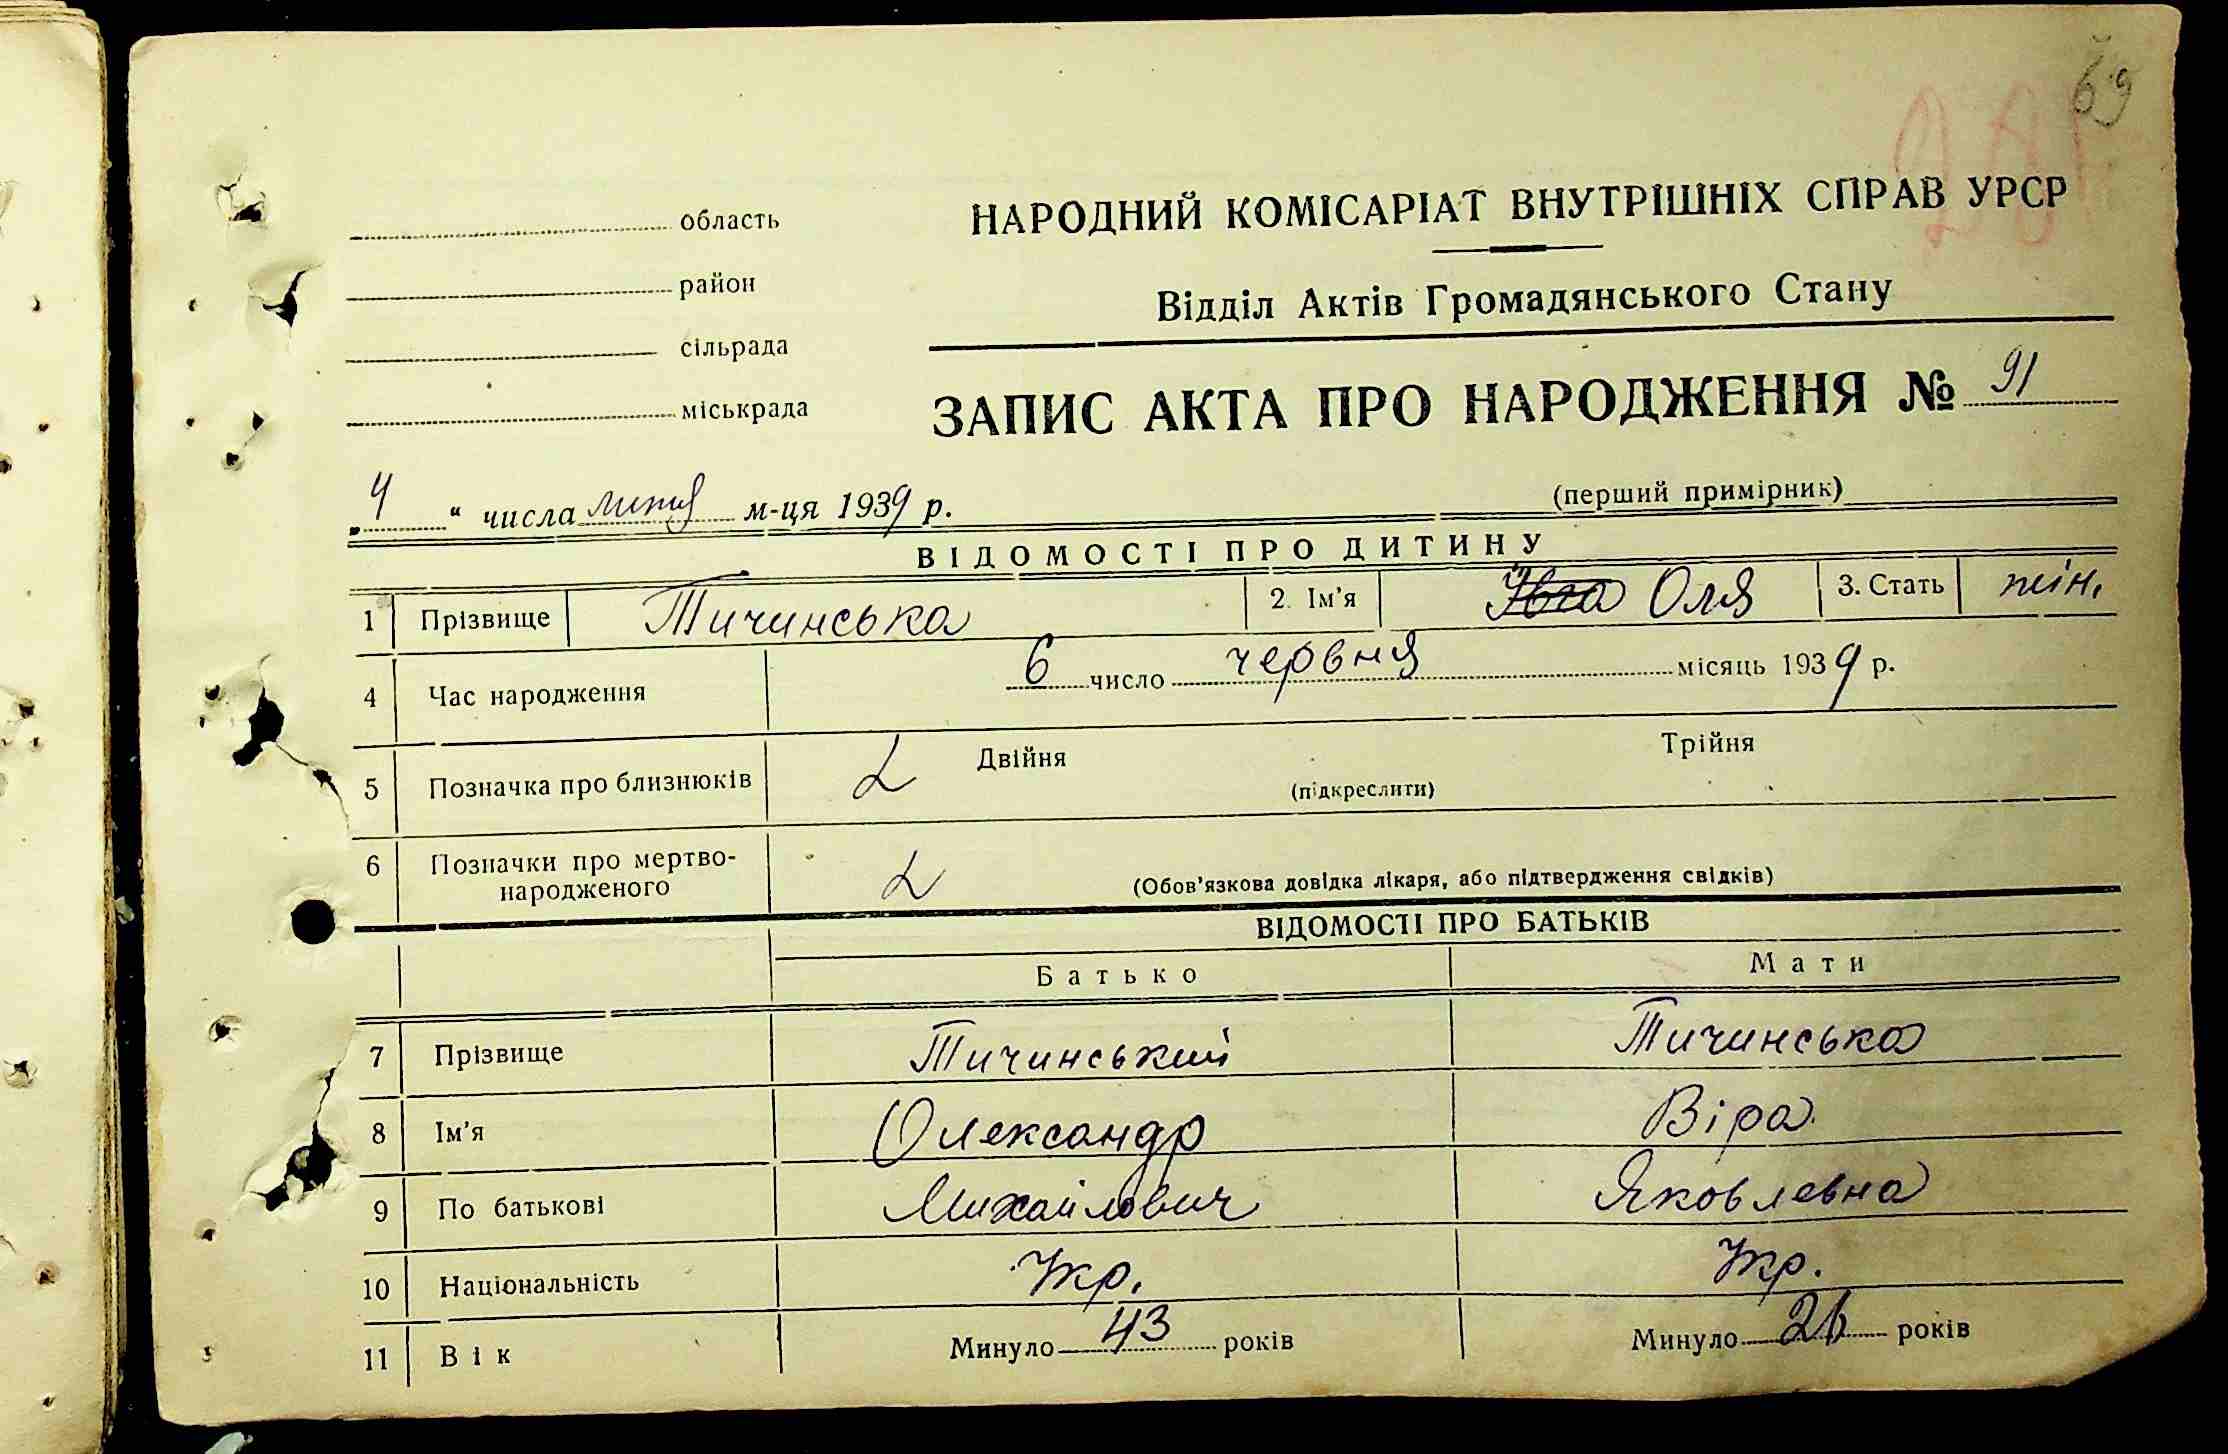 69
область
район
сільрада
міськрада
НАРОДНИЙ КОМІСАРІАТ ВНУТРІШНІХ СПРАВ УРСР
Відділ Актів Громадянського Стану
ЗАПИС АКТА ПРО НАРОДЖЕННЯ № 91
(перший примірник)
„4“ числа липня м-ця 1939 р.
ВІДОМОСТІ ПРО ДИТИНУ
1 Прізвище Тичинська 2. Ім'я Оля 3. Стать жін.
4 Час народження 6 число червня місяць 1939 р.
5 Позначка про близнюків Двійня Трійня
(підкреслити)
6 Позначки про мертво-
народженого (Обов'язкова довідка лікаря, або підтвердження свідків)
ВІДОМОСТІ ПРО БАТЬКІВ
Батько Мати
7 Прізвище Тичинський Тичинська
8 Ім'я Олександр Віра
9 По батькові Михайлович Яковлевна
10 Національність Укр. Укр.
11 Вік Минуло 43 років Минуло 26 років